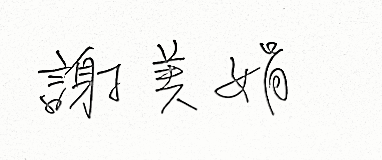 謝美娟